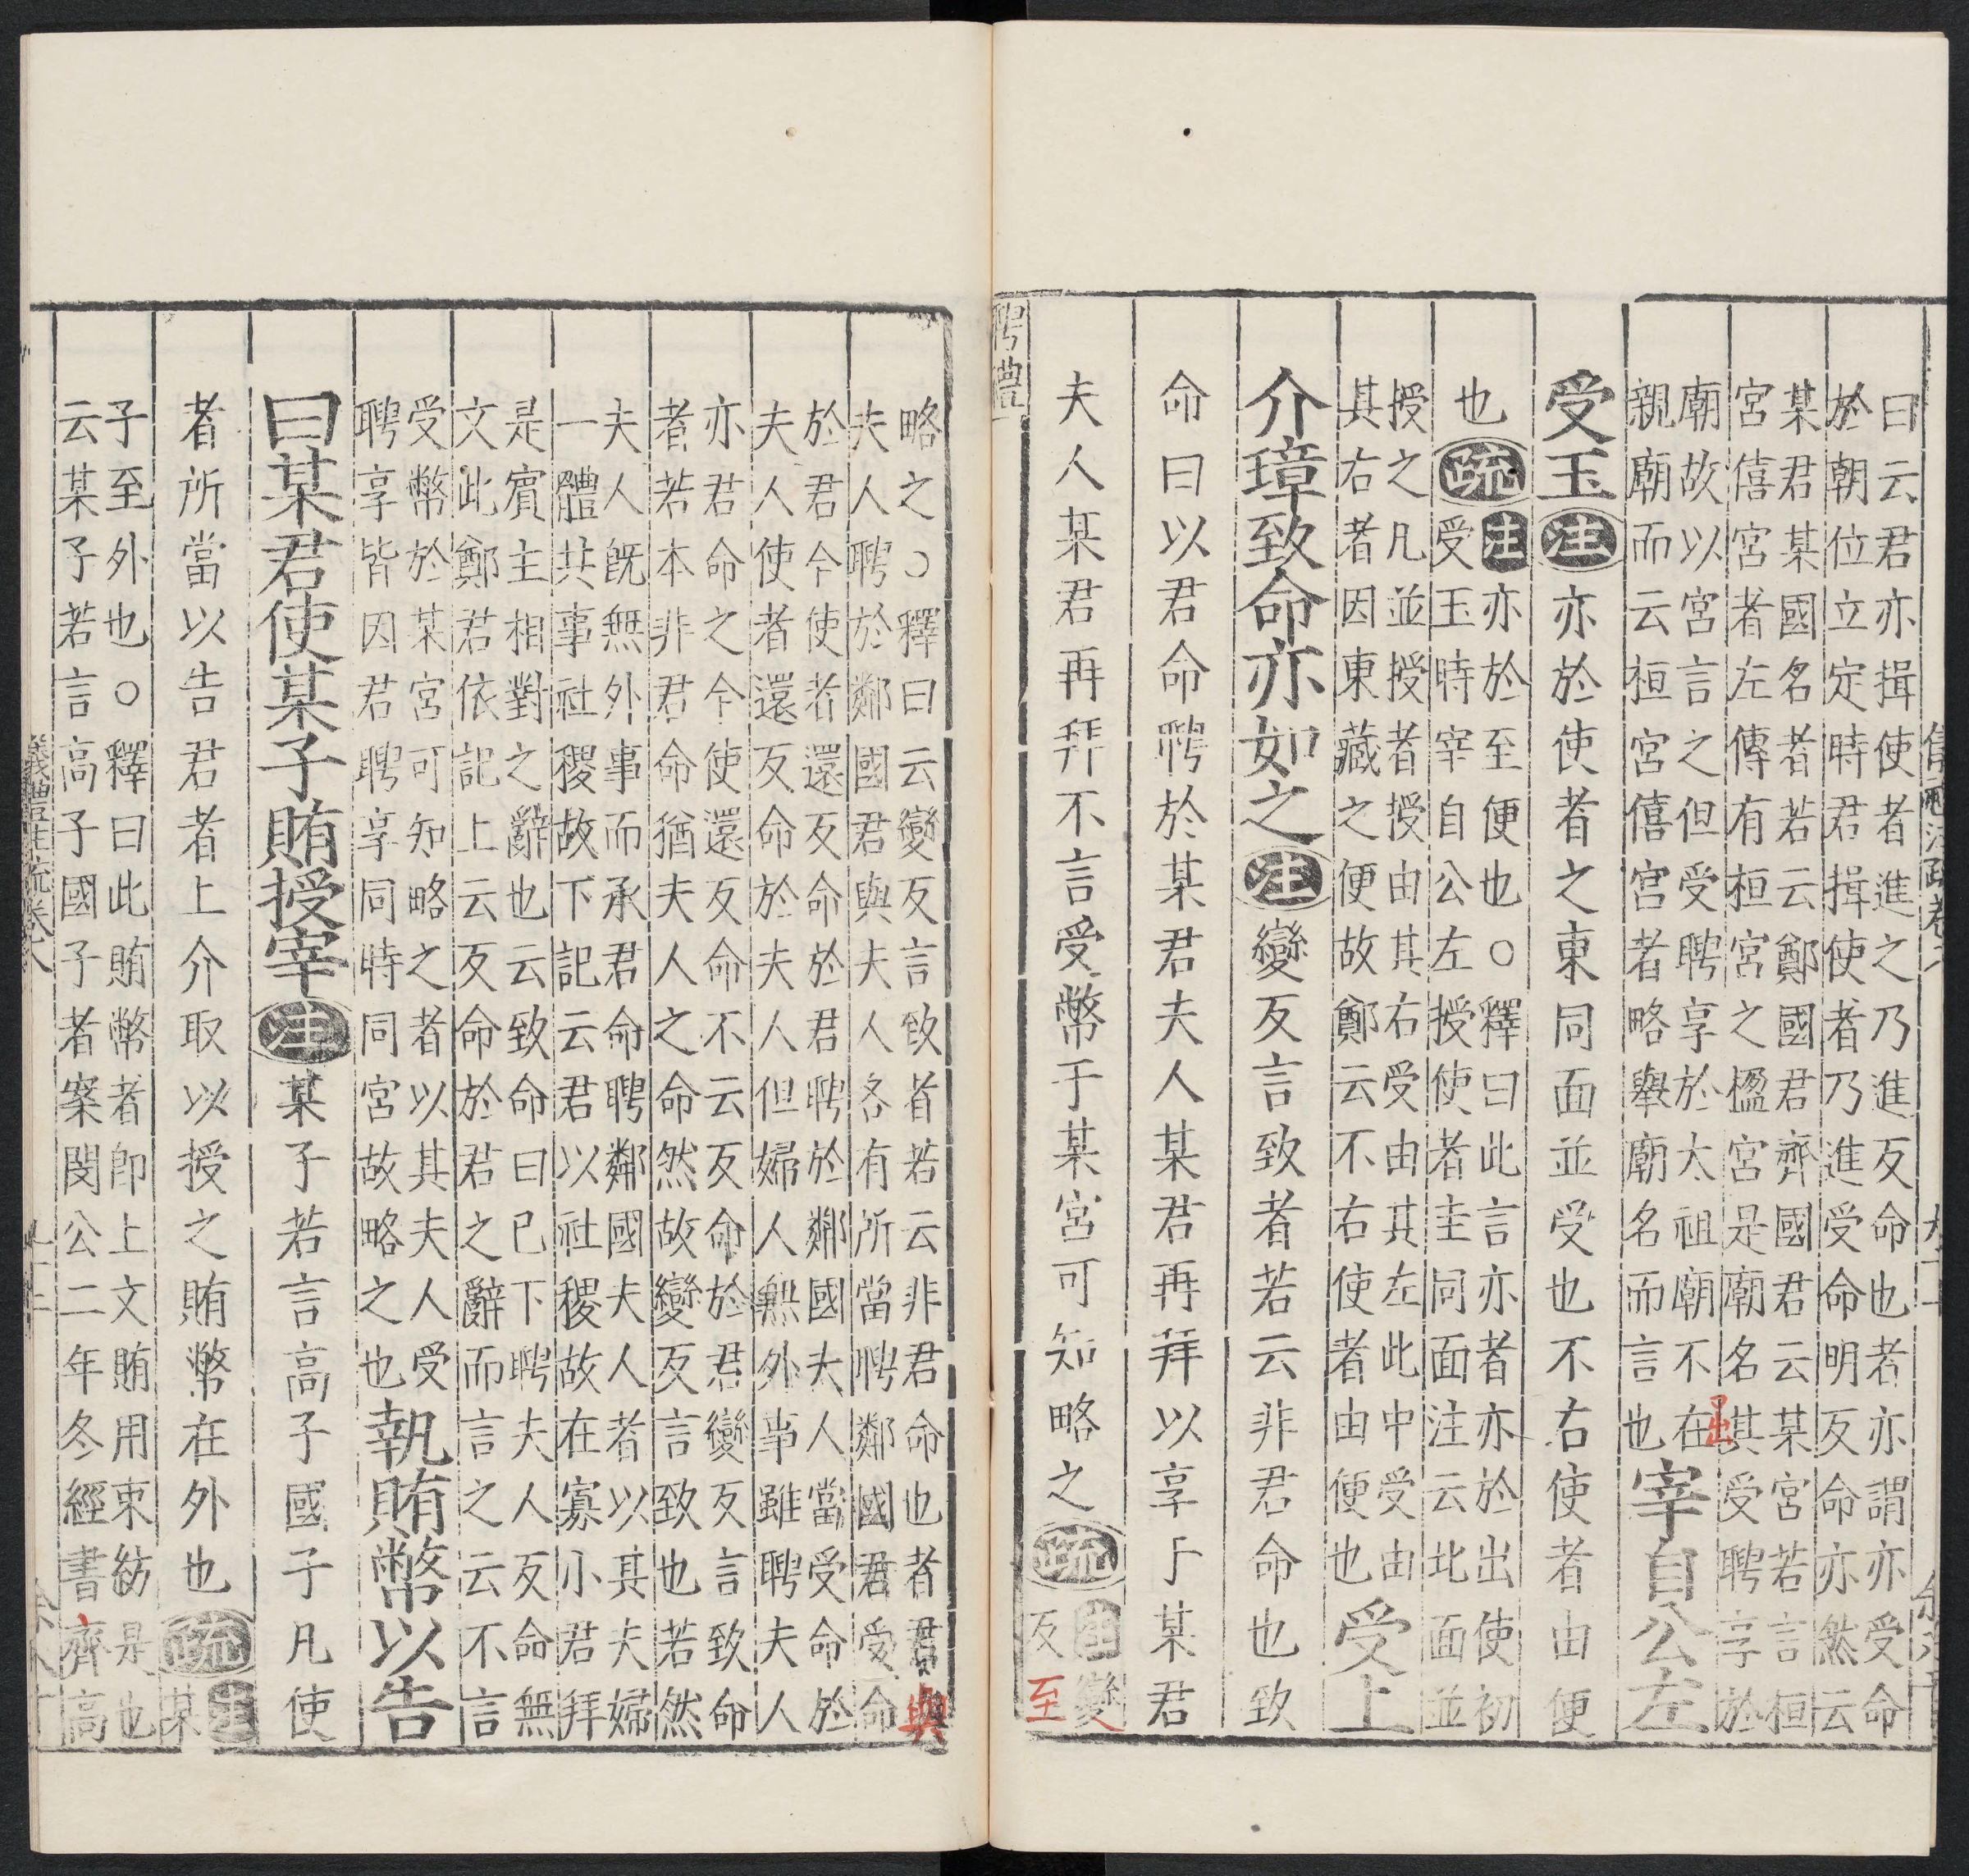 曰云君亦揖使者進之乃進反命也者亦謂亦受命
於朝位立定時君揖使者乃進受命明反命亦然云
某君某國名者若云鄭國君齊國君云某宮若言桓
宮僖宮者左傳有桓宮之楹宮是廟名其受聘享於
廟故以宮言之但受聘享於太祖廟不在
親廟而云桓宮僖宮者略舉廟名而言也
出
宰自公左
受玉注亦於使者之東同面並受也不右使者由便
也疏
注亦於至便也○釋曰此言亦者亦於出使初
受玉時宰自公左授使者圭同面注云北面並
授之凡並授者授由其右受由其左此中受由
其右者因東藏之便故鄭云不右使者由便也
受上
介璋致命亦如之注變反言致者若云非君命也致
命曰以君命聘於某君夫人某君再拜以享于某君
夫人某君再拜不言受幣于某宮可知略之疏
注變
反至
聘禮
略之○釋曰云變反言致者若云非君命也者君與
夫人聘於鄰國君與夫人各有所當聘鄰國君受命
於君今使者還反命於君聘於鄰國夫人當受命於
夫人使者還反命於夫人但婦人無外事雖聘夫人
亦君命之今使還反命不云反命於君變反言致命
者若本非君命猶夫人之命然故變反言致也若然
夫人旣無外事而承君命聘鄰國夫人者以其夫婦
一體共事社稷故下記云君以社稷故在寡小君拜
是賓主相對之辭也云致命曰已下聘夫人反命無
文此鄭君依記上云反命於君之辭而言之云不言
受幣於某宮可知略之者以其夫人受
聘享皆因君聘享同時同宮故略之也
執賄幣以告
曰某君使某子賄授宰注某子若言高子國子凡使
者所當以告君者上介取以授之賄幣在外也疏
注
某
子至外也○釋曰此賄幣者卽上文賄用束紡是也
云某子若言高子國子者案閔公二年冬經書齊高